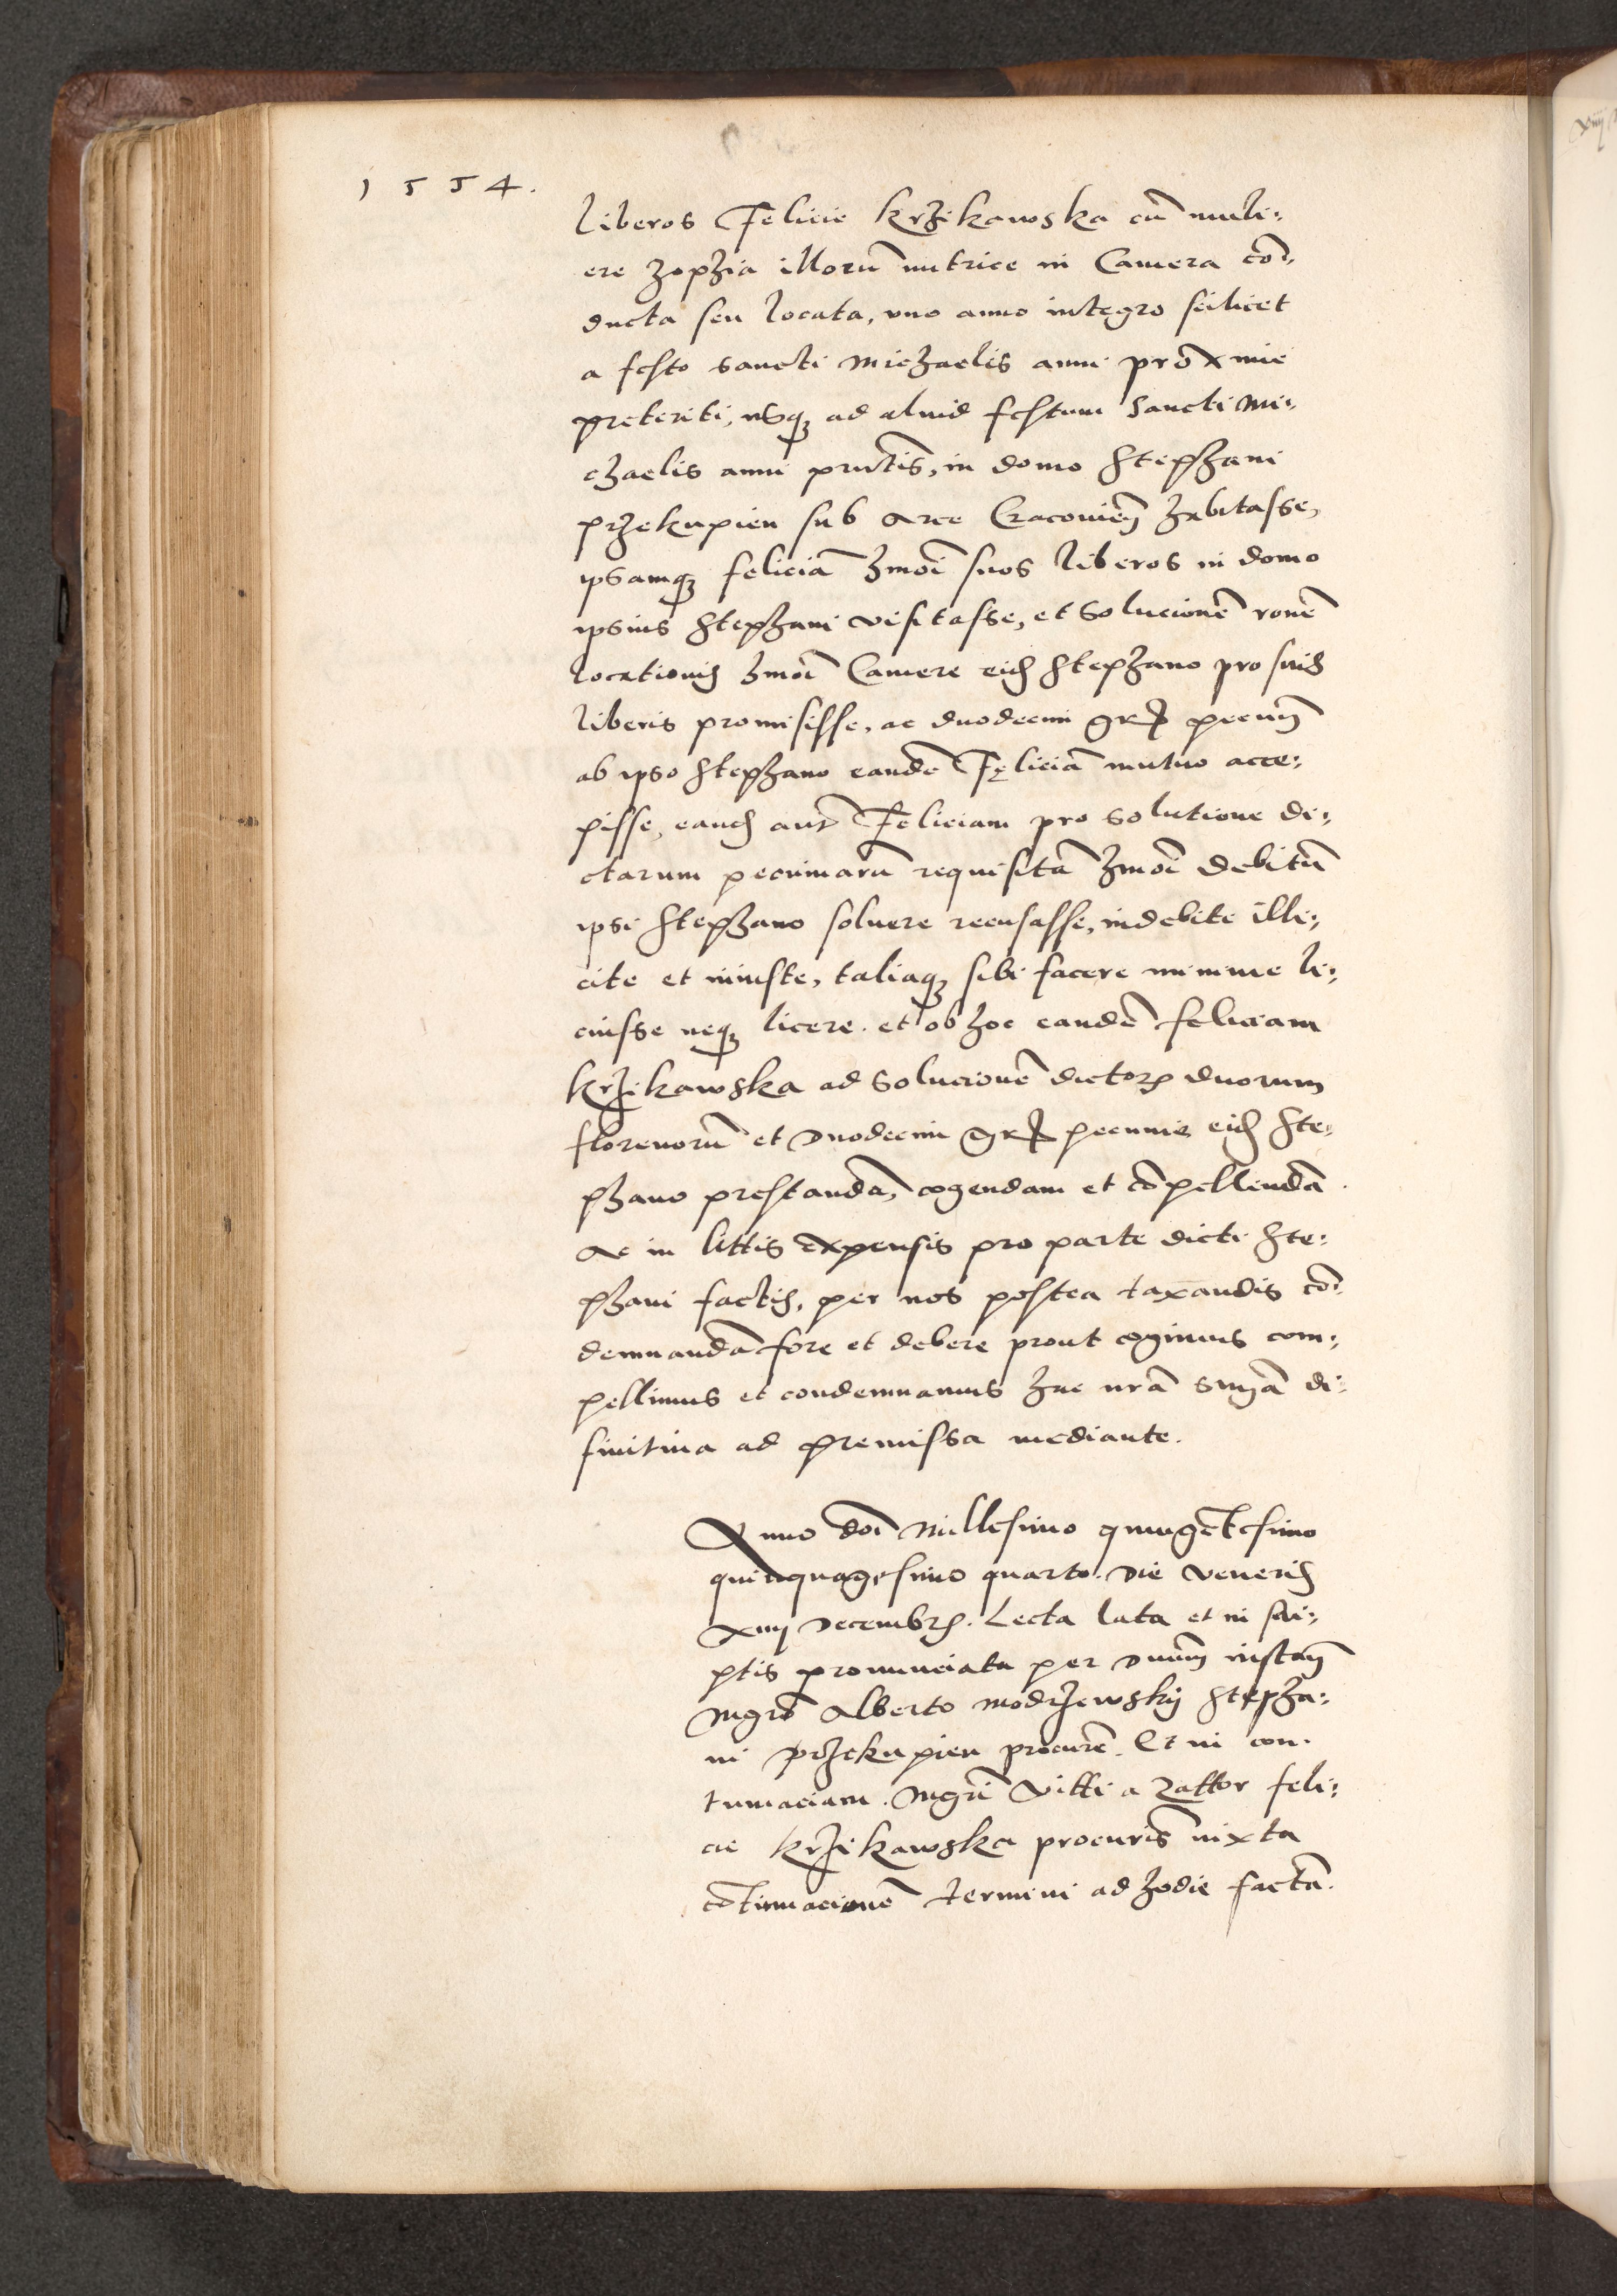 1554.
liberos Felicie Krzikawska cū muli:
ere Zophia illorū nutrice in Camera cō:
ducta seu locata, uno anno integro scilicet
a festo sancti Michaelis anni proxime
preteriti, usq ad aliud festum sancti Mi:
chaelis anni pntis, in domo Stephani
Przekupien sub Arce Cracovien habitasse,
ipsamq feliciā hmōi suos liberos in domo
ipsius Stephani visitasse, et solucionē rone
locationis hmōi Camere eid Stephano pro suis
liberis promisisse, ac duodecim gr pecun
ab ipso Stephano eandē Feliciā mutuo acce:
pisse, eand aut Feliciam pro solutione di:
ctarum pecuniarū requisitā hmōi debitū
ipsi Stephano solvere recusasse, indebite illi:
cite et iniuste, taliaq sibi facere minime li:
cuisse neq licere. et ob hoc eandē feliciam
Krzikawska ad solucionē dictor duorum
florenorū et duodecim gr pecunie eid Ste:
phano prestandā, cogendam et cōpellendā
ac in littis expensis pro parte dicti Ste:
phani factis, per nos postea taxandis cō:
demnandā fore et debere prout cogimus com:
pellimus et condemnamus hac nrā snīa di:
finitiva ad premissa mediante.
Anno dōi Millesimo quingētesimo
quinquagesimo quarto. Die veneris
xiiij Decembr. Lecta lata et in scri:
ptis pronunciata per Dnum instan
Mgro Alberto Modrzewskij Stepha:
ni Przekupien procure. Et in con:
tumaciam. Mgri Vitti a Zattor feli:
cie Krzikawska procuris iuxta
cōtinuacionē termini ad hodie factā.